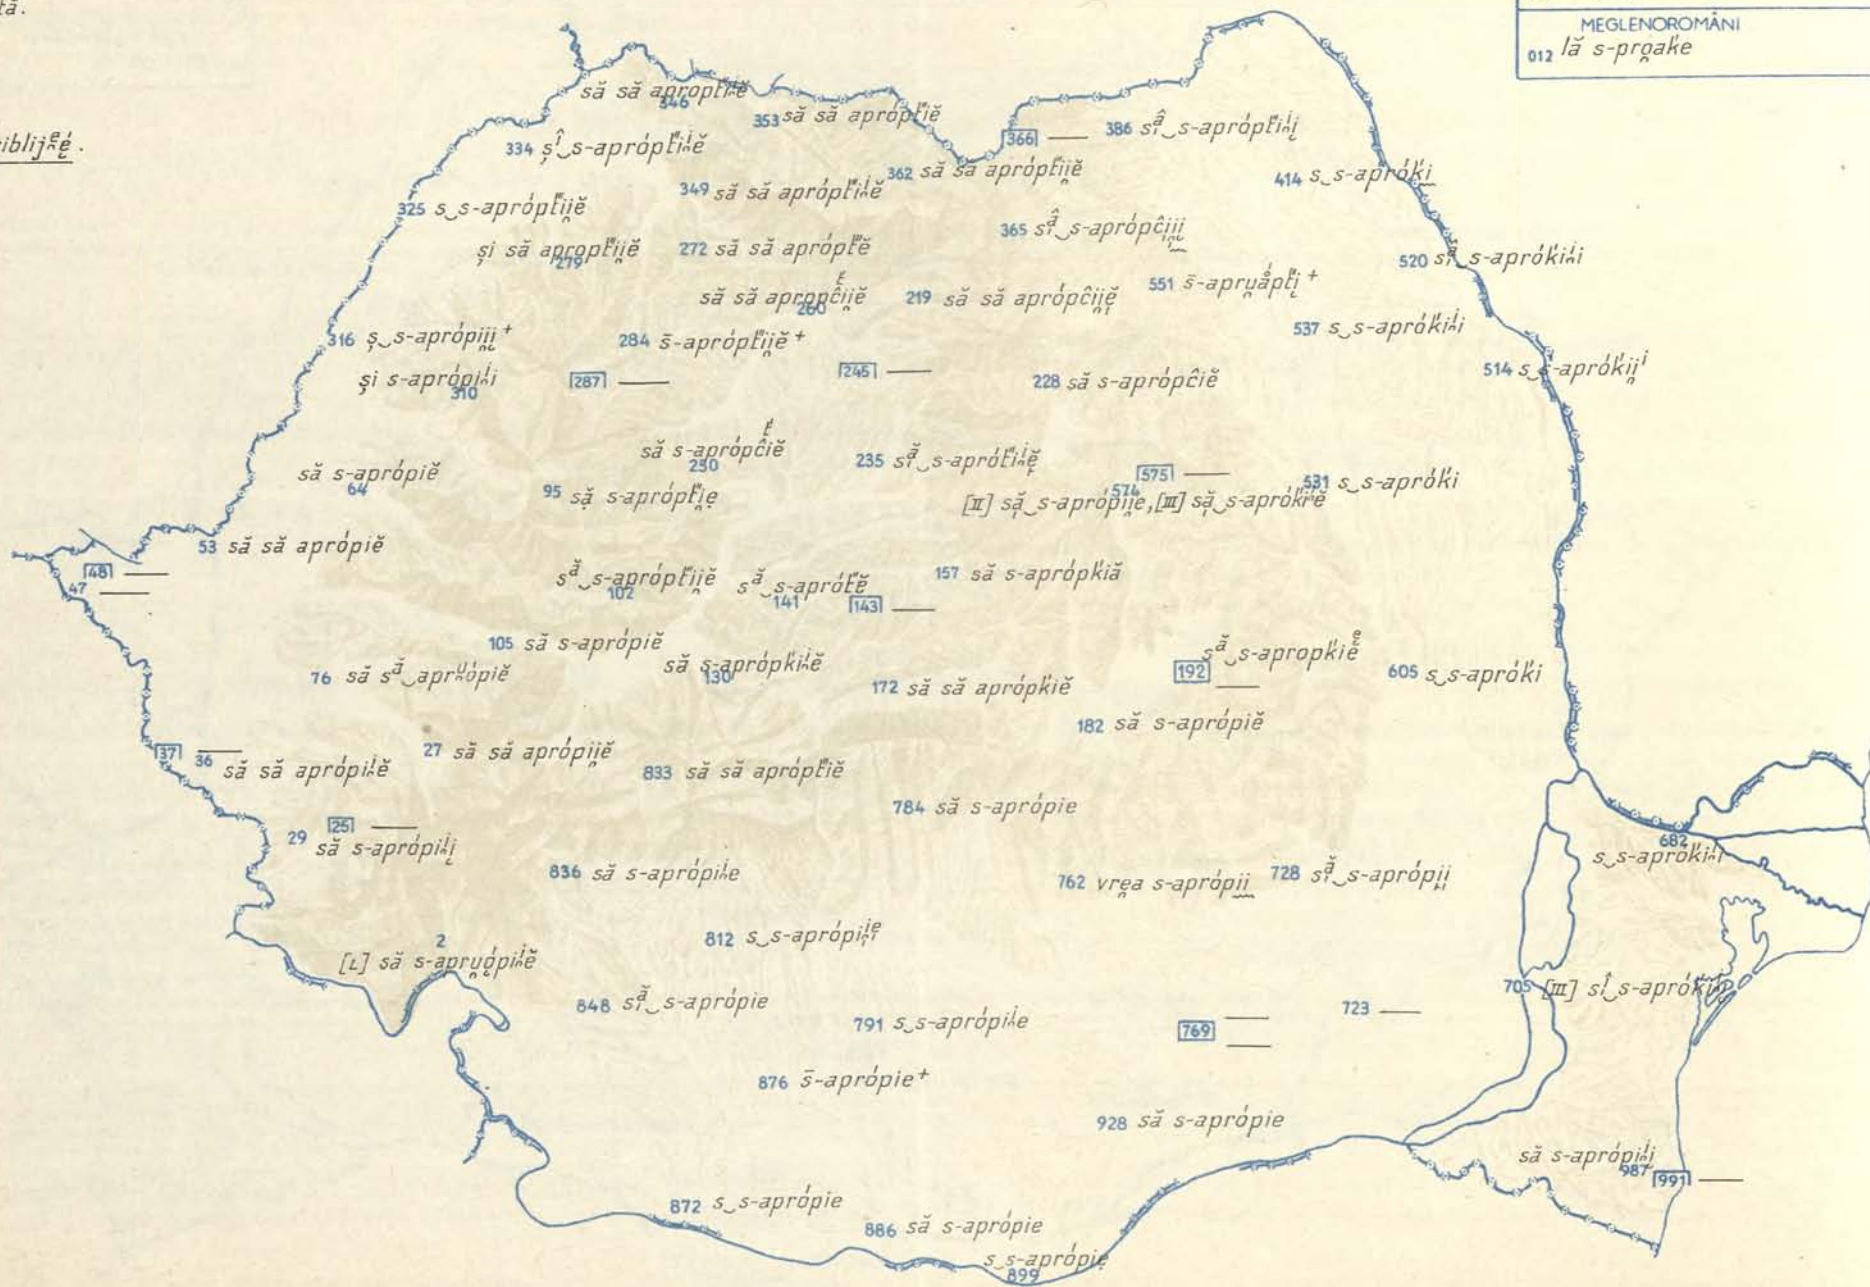 tă.
MEGLENOROMÂNI
012 lă s-prǫaḱe
346 să să aproptíi̯ĕ
353 să să aróptíĕ
334 șî‿s-aprópti̯ĕ
366 —
386 sî‿s-aprópti̯i
349 să să aprópti̯ĕ
362 să să apróptii̯ĕ
414 s‿s-apróḱi
325 s‿s-apróptii̯ĕ
365 sî‿s-aprópĉii̯i
279 și să aproptii̯ĕ
272 să să aróptĕ
520 s‿s-apróḱii̯i
260 să să apropĉii̯ĕ
219 să să aprópĉii̯ĕ
551 s̄-apru̯ắpti̯ +
316 ș‿s-aprópii̯i +
284 s̄-apróptii̯ĕ +
537 s‿s-apróḱii̯i
310 și s-aprópii̯i
287 —
245 —
228 să s-aprópĉiĕ
514 s‿s-apróḱii̯i
64 să s-aprópiĕ
250 să s-aprópĉiĕ
235 să‿s-aprótíi̯ĕ
575 —
531 s‿s-apróḱi
95 să s-aróptíe
574 [II] să‿s-aprópii̯e, [III] să‿s-apróḱíĕ
53 să să aprópiĕ
48 —
47 —
102 să‿s-apróptii̯ĕ
141 să‿s-aprótĕ
143 —
157 să s-aprópḱiă
105 să s-aprópiĕ
130 să s-aprópḱii̯ĕ
192 — să‿s-apropḱiĕ
605 s‿s-apróḱi
76 să să‿aprᵘópiĕ
172 să să aprópḱiĕ
182 să s-aprópiĕ
37 —
36 să să aprópii̯ĕ
27 să să aprópii̯ĕ
833 să să apróptíĕ
784 să s-aprópie
25 —
29 să s-aprópii̯i
682 s‿s-apróḱii̯i
836 să s-aprópii̯e
762 vre̯a s-aprópii
728 să‿s-aprópii
812 s‿s-aprópii̯e
2 [L] să s-apru̯ópii̯ĕ
848 să‿s-aprópie
705 [III] sî‿s-apróḱii̯i
791 s‿s-aprópii̯e
769 —
723 —
876 s̄-aprópie +
928 să s-aprópie
987 să s-aprópii̯i
991 —
872 s‿s-aprópie
886 să s-aprópie
899 s‿s-aprópie